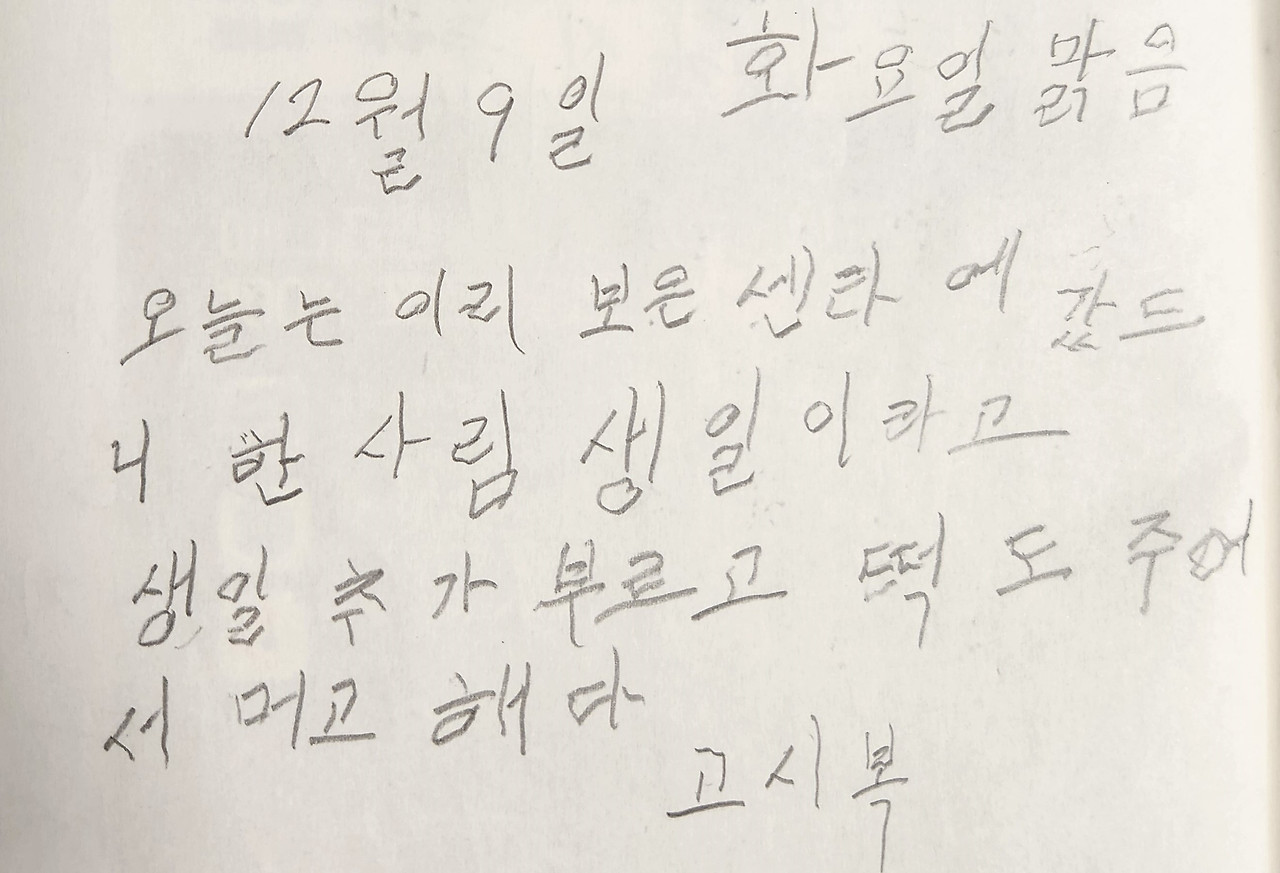 12월 9일 화요일 맑음
오늘는 이리 보은 센타 에 갔드
니 한 사림 생일 이라고
생일 추 가 부르고 떡 도 주어
서 머고 해 다
고시복